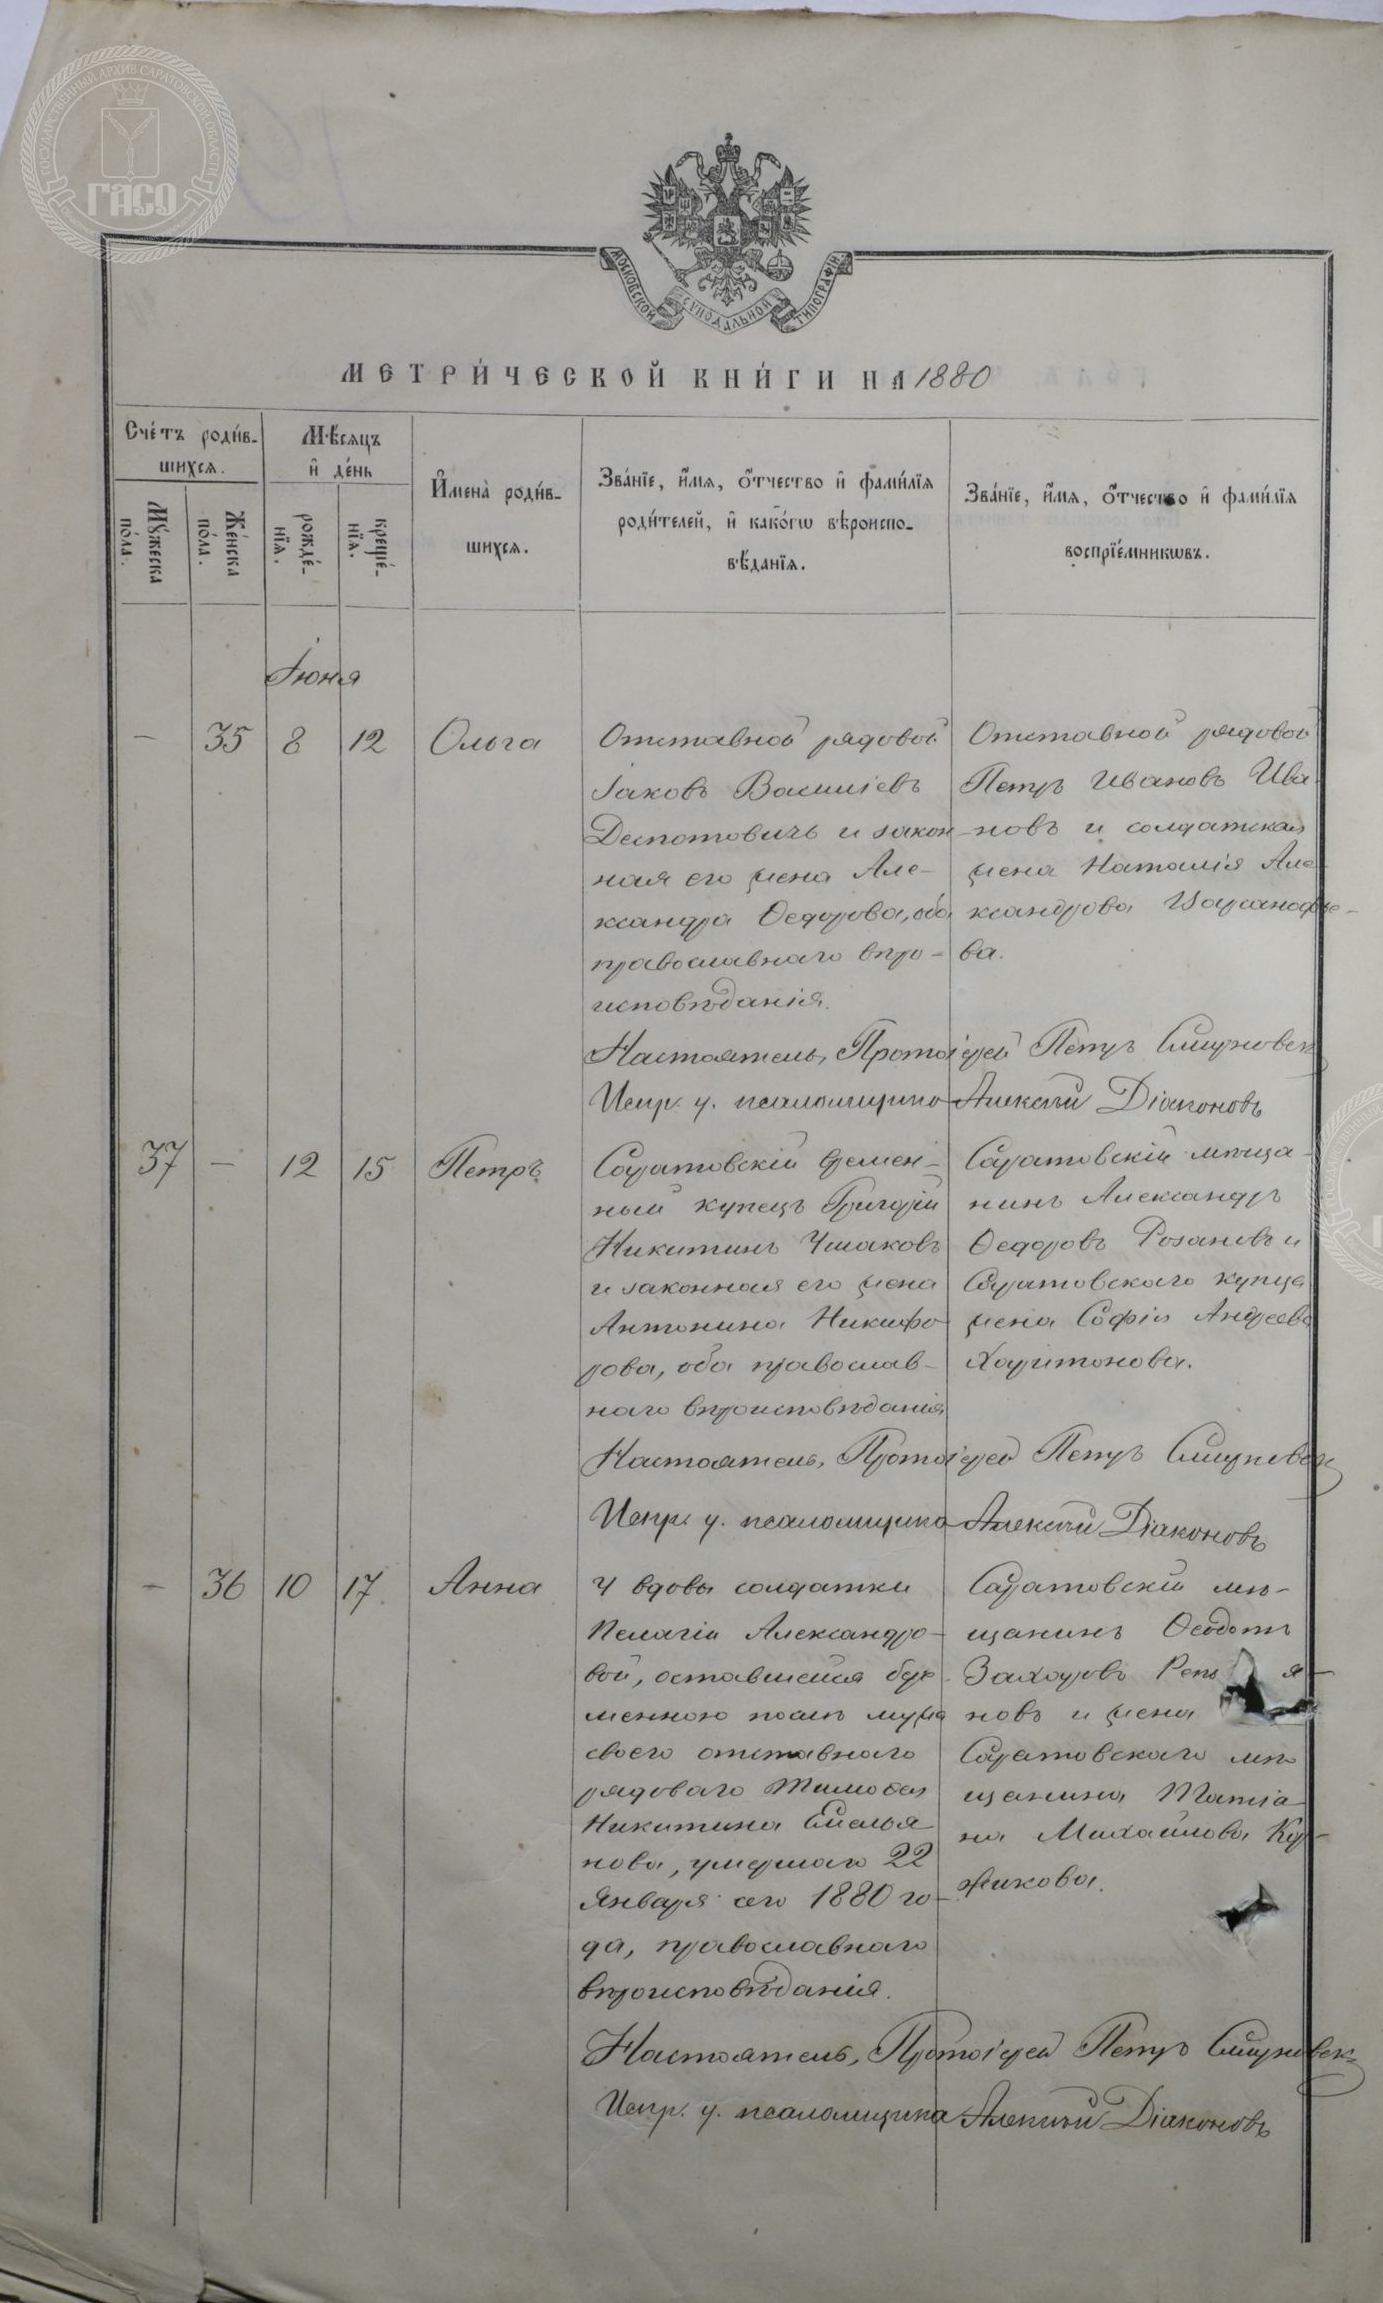 ГОСУДАРСТВЕННЫЙ АРХИВ САРАТОВСКОЙ ОБЛАСТИ
ГАСО
МОСКОВСКОЙ СѴНОДАЛЬНОЙ ТИПОГРАФІИ
МЕТРИ́ЧЕСКОЙ КНИ́ГИ НА 1880
Сче́тъ роди́в-
шихсѧ.
Мꙋ́жеска
по́ла.
Же́нска
по́ла.
Мѣ́сѧцъ
и҆ де́нь
рожде́-
нїѧ.
креще́-
нїѧ.
И҆мена̀ роди́в-
шихсѧ.
Зва́нїе, и҆́мѧ, ѻ҆́тчество и҆ фами́лїѧ
роди́телей, и҆ како́гѡ вѣроиспо-
вѣ́данїѧ.
Зва́нїе, и҆́мѧ, ѻ҆́тчество и҆ фами́лїѧ
воспрїе́мникѡвъ.
Іюня
– 35 8 12 Ольга
Отставной рядовой
Іаковъ Василіевъ
Деспотовичъ и закон-
ная его жена Але-
ксандра Ѳедорова, оба
православнаго вѣро-
исповѣданія.
Отставной рядовой
Петръ Ивановъ Ива-
новъ и солдатская
жена Наталія Але-
ксандрова Варсанофье-
ва.
Настоятель, Протоіерей Петръ
Испр. у. псаломщика Алексій Діаконовъ
37 – 12 15 Петръ
Саратовскій времен-
ный купецъ Григорій
Никитинъ Ушаковъ
и законная его жена
Антонина Никифо-
рова, оба православ-
наго вѣроисповѣданія
Саратовскій мѣща-
нинъ Александръ
Ѳедоровъ Розановъ и
Саратовскаго купца
жена Софія Андреева
Харитонова.
Настоятель, Протоіерей Петръ
Испр. у. псаломщика Алексій Діаконовъ
– 36 10 17 Анна
У вдовы солдатки
Пелагіи Александро-
вой, оставшейся бере-
менною послѣ мужа
своего отставнаго
рядоваго Тимофея
Никитина Емелья
нова, умершаго 22
Января сего 1880 го-
да, православнаго
вѣроисповѣданія.
Саратовскій мѣ-
щанинъ Ѳеодотъ
Захаровъ
новъ и жена
Саратовскаго мѣ
щанина Татіа-
на Михайлова Ку-
жикова.
Настоятель, Протоіерей Петръ
Испр. у. псаломщика Алексій Діаконовъ